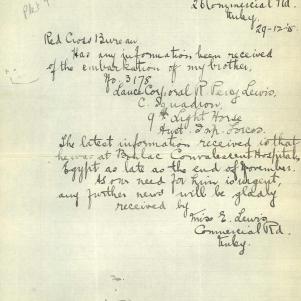 26 Commercial Rd.
Unley.
29-12-15
Red Cross Bureau
Has any information been received
of the embarkation of my brother.
No. 3178
Lance Corporal R. Percy Lewis.
C. Squadron
9th Light Horse
Aust. Exp. Forces.
The latest information received is that
he was at Boulac Convalescent Hospital
Egypt as late as the end of November.
As our need for him is urgent,
any further news will be gladly
received by
Miss E. Lewis
Commercial Rd.
Unley.